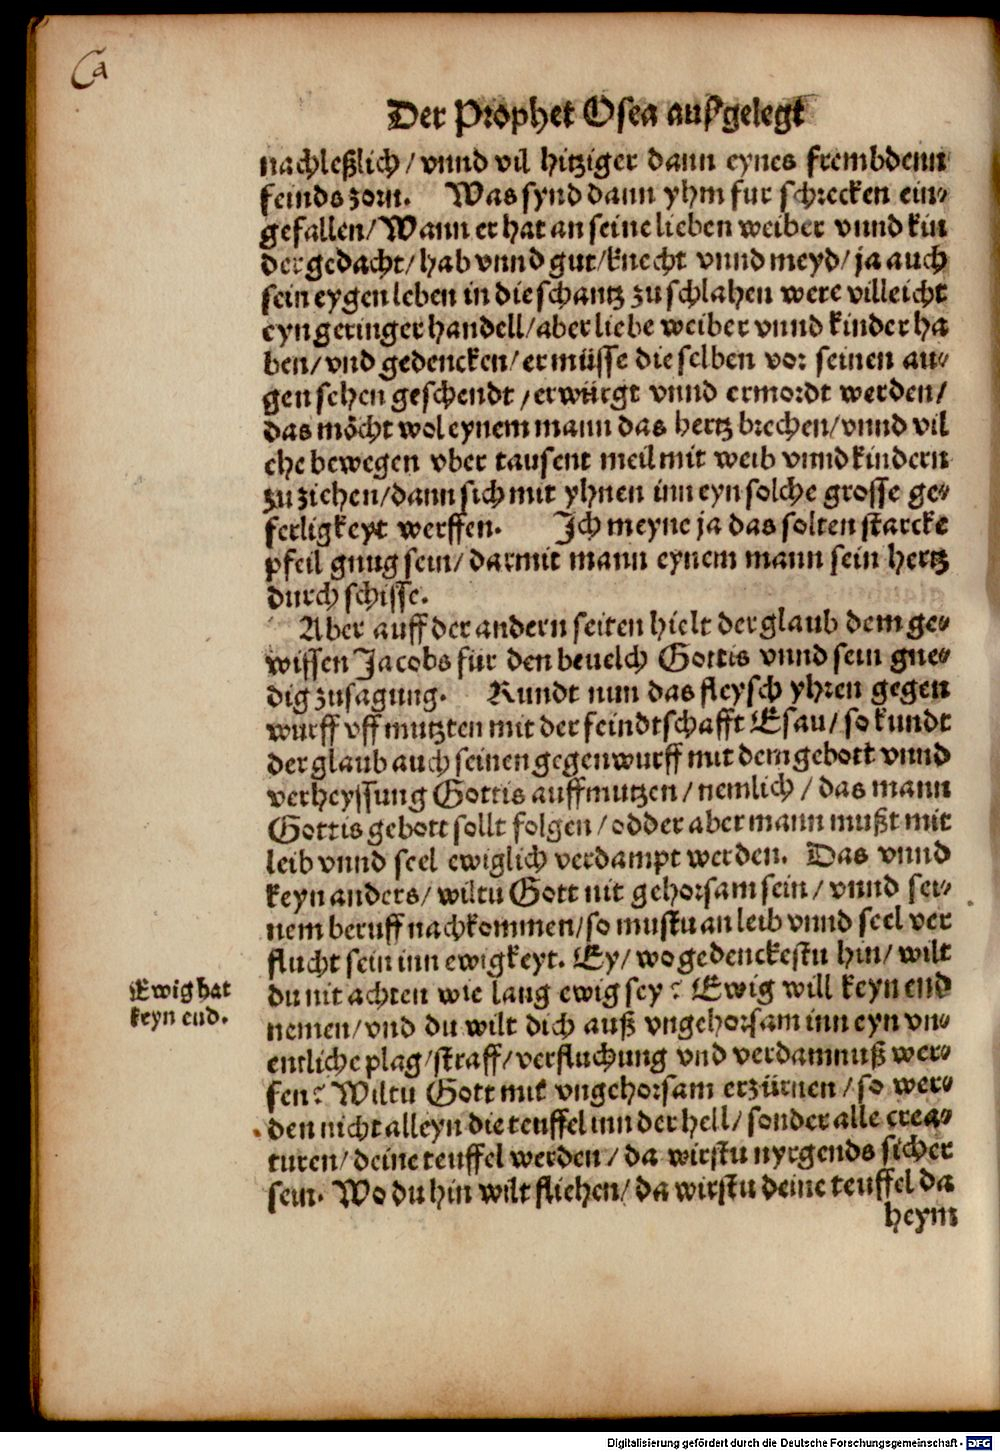 Ca
Der Prophet Osea außgelegt
nachleßlich / vnnd vil hitziger dann eynes frembdenn
feinds zorn. Was synd dann yhm fur schrecken ein-
gefallen / Wann er hat an seine lieben weiber vnnd kin
der gedacht / hab vnnd gut / knecht vnnd meyd / ja auch
sein eygen leben in die schantz zu schlahen were villeicht
eyn geringer handell / aber liebe weiber vnnd kinder ha
ben / vnd gedencken / er müsse die selben vor seinen au-
gen sehen geschendt / erwürgt vnnd ermordt werden /
das möcht wol eynem mann das hertz brechen / vnnd vil
ehe bewegen vber tausent meil mit weib vnnd kindern
zu ziehen / dann sich mit yhnen inn eyn solche grosse ge-
ferligkeyt werffen. Ich meyne ja das solten starcke
pfeil gnug sein / darmit mann eynem mann sein hertz
durch schisse.
Aber auff der andern seiten hielt der glaub dem ge-
wissen Jacobs für den beuelch Gottis vnnd sein gne-
dig zusagung. Kundt nun das fleysch yhren gegen
wurff vff mutzten mit der feindtschafft Esau / so kundt
der glaub auch seinen gegenwurff mit dem gebott vnnd
verheyssung Gottis auffmutzen / nemlich / das mann
Gottis gebott sollt folgen / odder aber mann mußt mit
leib vnnd seel ewiglich verdampt werden. Das vnnd
keyn anders / wiltu Gott nit gehorsam sein / vnnd sei-
nem beruff nachkommen / so mustu an leib vnnd seel ver
flucht sein inn ewigkeyt. Ey / wo gedenckestu hin / wilt
Ewig hat
keyn end.
du nit achten wie lang ewig sey? Ewig will keyn end
nemen / vnd du wilt dich auß vngehorsam inn eyn vn-
entliche plag / straff / verfluchung vnd verdamnuß wer-
fen? Wiltu Gott mit vngehorsam erzürnen / so wer-
den nicht alleyn die teuffel inn der hell / sonder alle crea-
turen / deine teuffel werden / da wirstu nyrgends sicher
sein. Wo du hin wilt fliehen / da wirstu deine teuffel da
heym
Digitalisierung gefördert durch die Deutsche Forschungsgemeinschaft - DFG